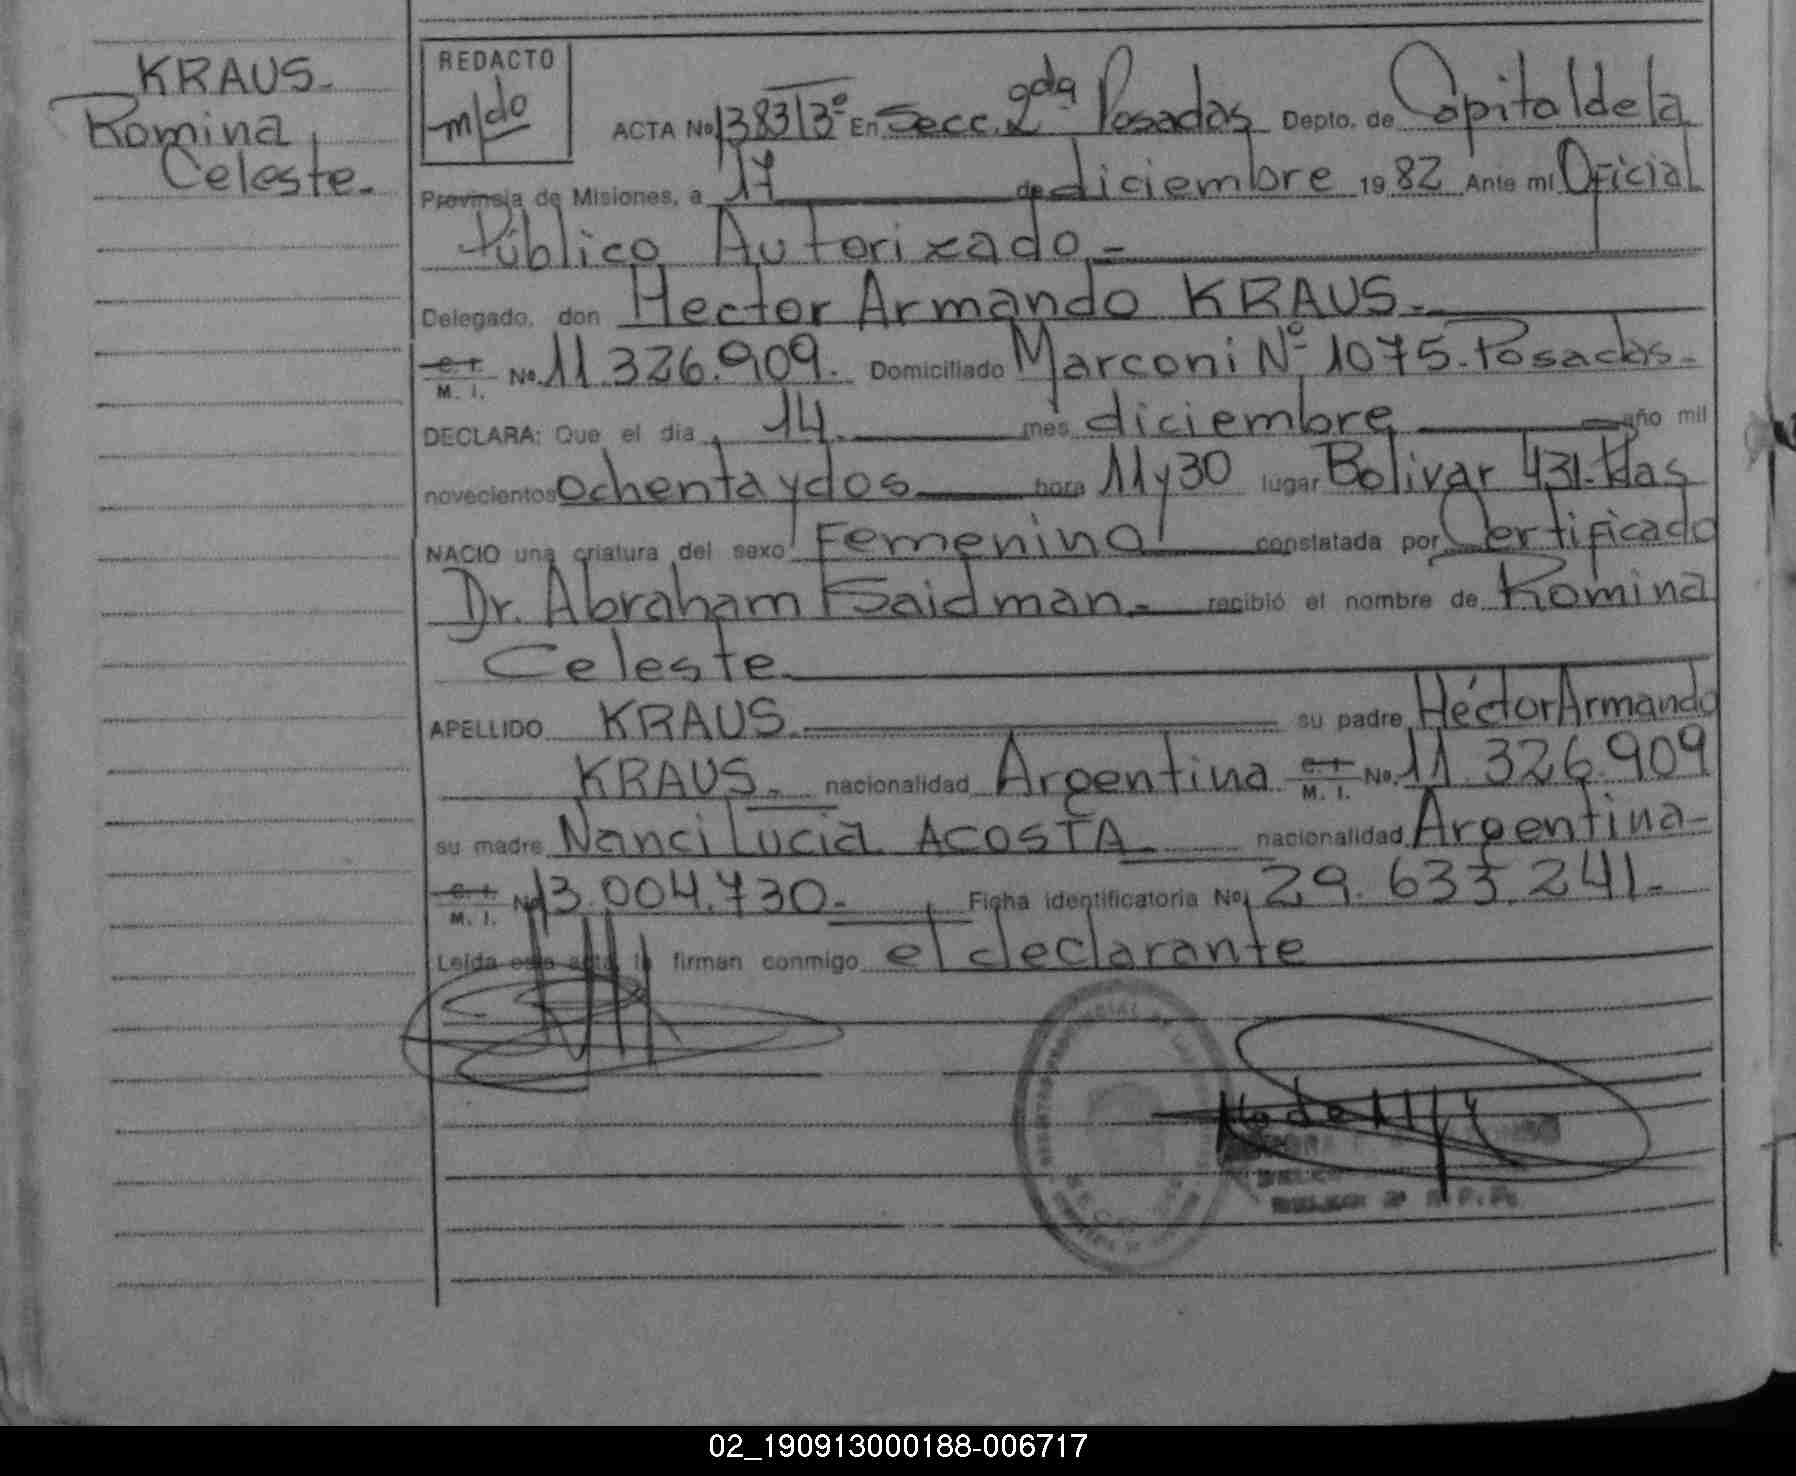 KRAUS.
Romina
Celeste.
REDACTO
m/do
ACTA No 1383 T3º En Secc. 2da Posadas Depto. de Capital de la
Provincia de Misiones, a 17 de diciembre 19 82 Ante mi Oficial
Público Autorizado.
Delegado, don Hector Armando KRAUS.
C. I. M. I. No. 11.326.909. Domiciliado Marconi Nº 1075. Posadas.
DECLARA: Que el día 14 mes diciembre año mil
novecientos ochenta y dos hora 11 y 30 lugar Bolivar 431. Pdas
NACIO una criatura del sexo Femenino constatada por Certificado
Dr. Abraham Saidman. recibió el nombre de Romina
Celeste
APELLIDO KRAUS. su padre Héctor Armando
KRAUS. nacionalidad Argentina C. I. M. I. No. 11.326.909
su madre Nanci Lucia ACOSTA. nacionalidad Argentina
C. I. M. I. No 13.004.730. Ficha identificatoria No. 29.633.241.
Leída esta acta la firman conmigo el declarante
02_190913000188-006717